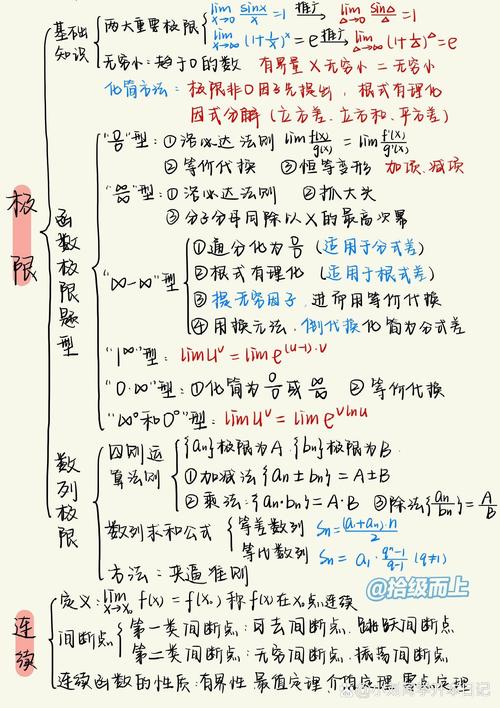 极限
基础知识
两大重要极限
lim x→0 sinx/x = 1 推广 lim △→0 sin△/△ = 1
lim x→∞ (1+1/x)^x = e 推广 lim △→∞ (1+1/△)^△ = e
无穷小：趋于0的数 有界量×无穷小=无穷小
化简方法：极限非0因子先提出，根式有理化
因式分解（立方差、立方和、平方差）
函数极限题型
"0/0"型：①洛必达法则 lim f(x)/g(x) = lim f'(x)/g'(x)
②等价代换 ③恒等变形 加项、减项
"∞/∞"型：①洛必达法则 ②抓大头
③分子分母同除以X的最高次幂
"∞-∞"型
①通分化为0/0（适用于分式差）
②根式有理化（适用于根式差）
③提无穷因子，进而用等价代换
④用换元法、倒代换化简为分式差
"1^∞"型：lim u^v = lim e^(u-1)·v
"0·∞"型：①化简为0/0或∞/∞ ②等价代换
"∞^0和0^0"型：lim u^v = lim e^vlnu
数列极限
四则运算法则
{an}极限为A，{bn}极限为B
①加减法{an±bn}=A±B
②乘法：{an·bn}=A·B ③除法{an/bn}=A/B
数列求和公式
等差数列 Sn=(a1+an)·n/2
等比数列 Sn=a1·(q^n-1)/(q-1) (q≠1)
方法：夹逼准则
@拾级而上
连续
定义：lim x→x0 f(x)=f(x0)称f(x)在x0点连续
间断点
第一类间断点：可去间断点、跳跃间断点
第二类间断点：无穷间断点、振荡间断点
连续函数的性质：有界性、最值定理、介值定理、零点定理